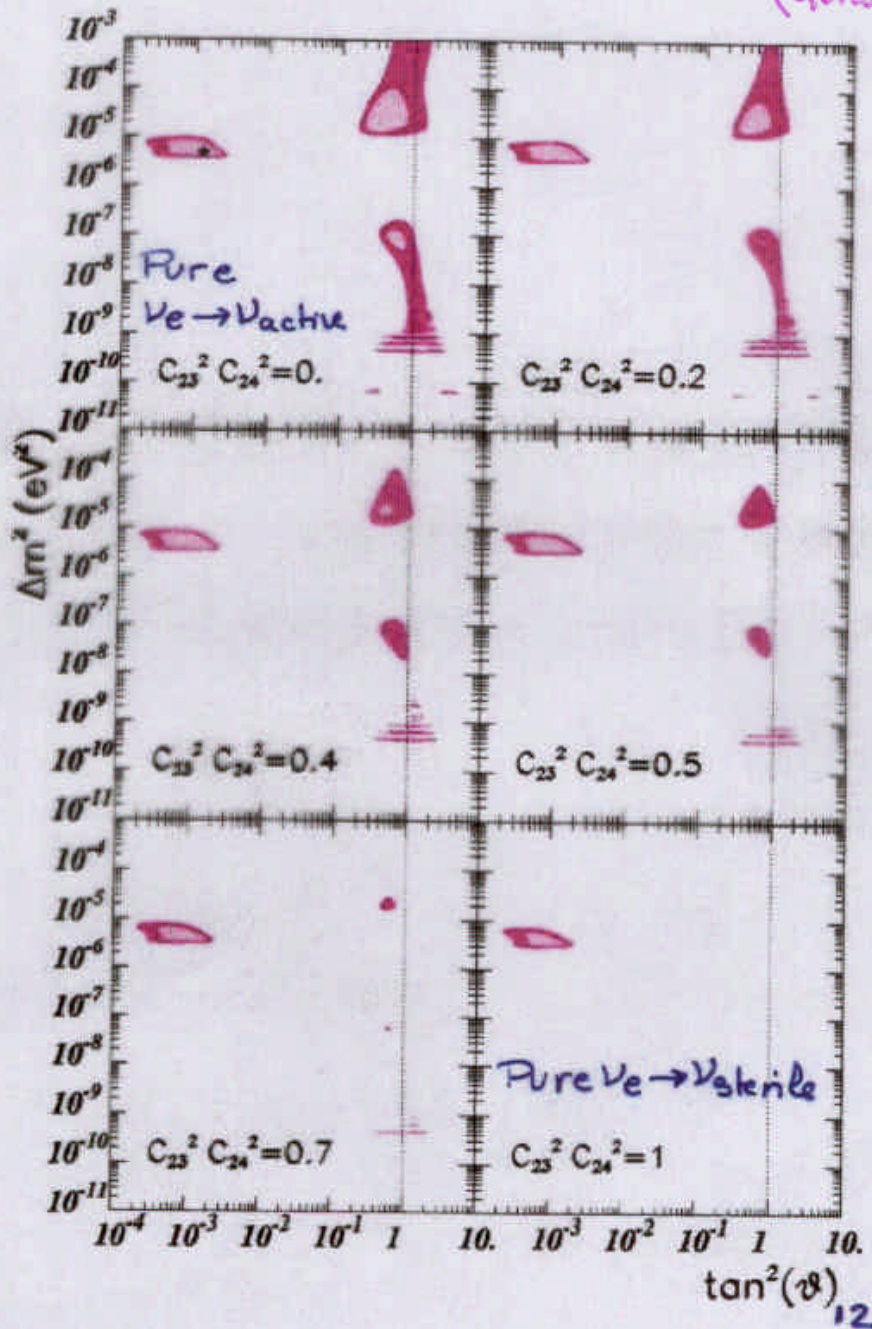 10⁻³
10⁻⁴
10⁻⁵
10⁻⁶
10⁻⁷
10⁻⁸
10⁻⁹
10⁻¹⁰
10⁻¹¹
Pure
νe → νactive
C₂₃² C₂₄²=0.
C₂₃² C₂₄²=0.2
Δm² (eV²)
10⁻⁴
10⁻⁵
10⁻⁶
10⁻⁷
10⁻⁸
10⁻⁹
10⁻¹⁰
10⁻¹¹
C₂₃² C₂₄²=0.4
C₂₃² C₂₄²=0.5
10⁻⁴
10⁻⁵
10⁻⁶
10⁻⁷
10⁻⁸
10⁻⁹
10⁻¹⁰
10⁻¹¹
C₂₃² C₂₄²=0.7
Pure νe → νsterile
C₂₃² C₂₄²=1
10⁻⁴ 10⁻³ 10⁻² 10⁻¹ 1 10. 10⁻³ 10⁻² 10⁻¹ 1 10.
tan²(ϑ)₁₂